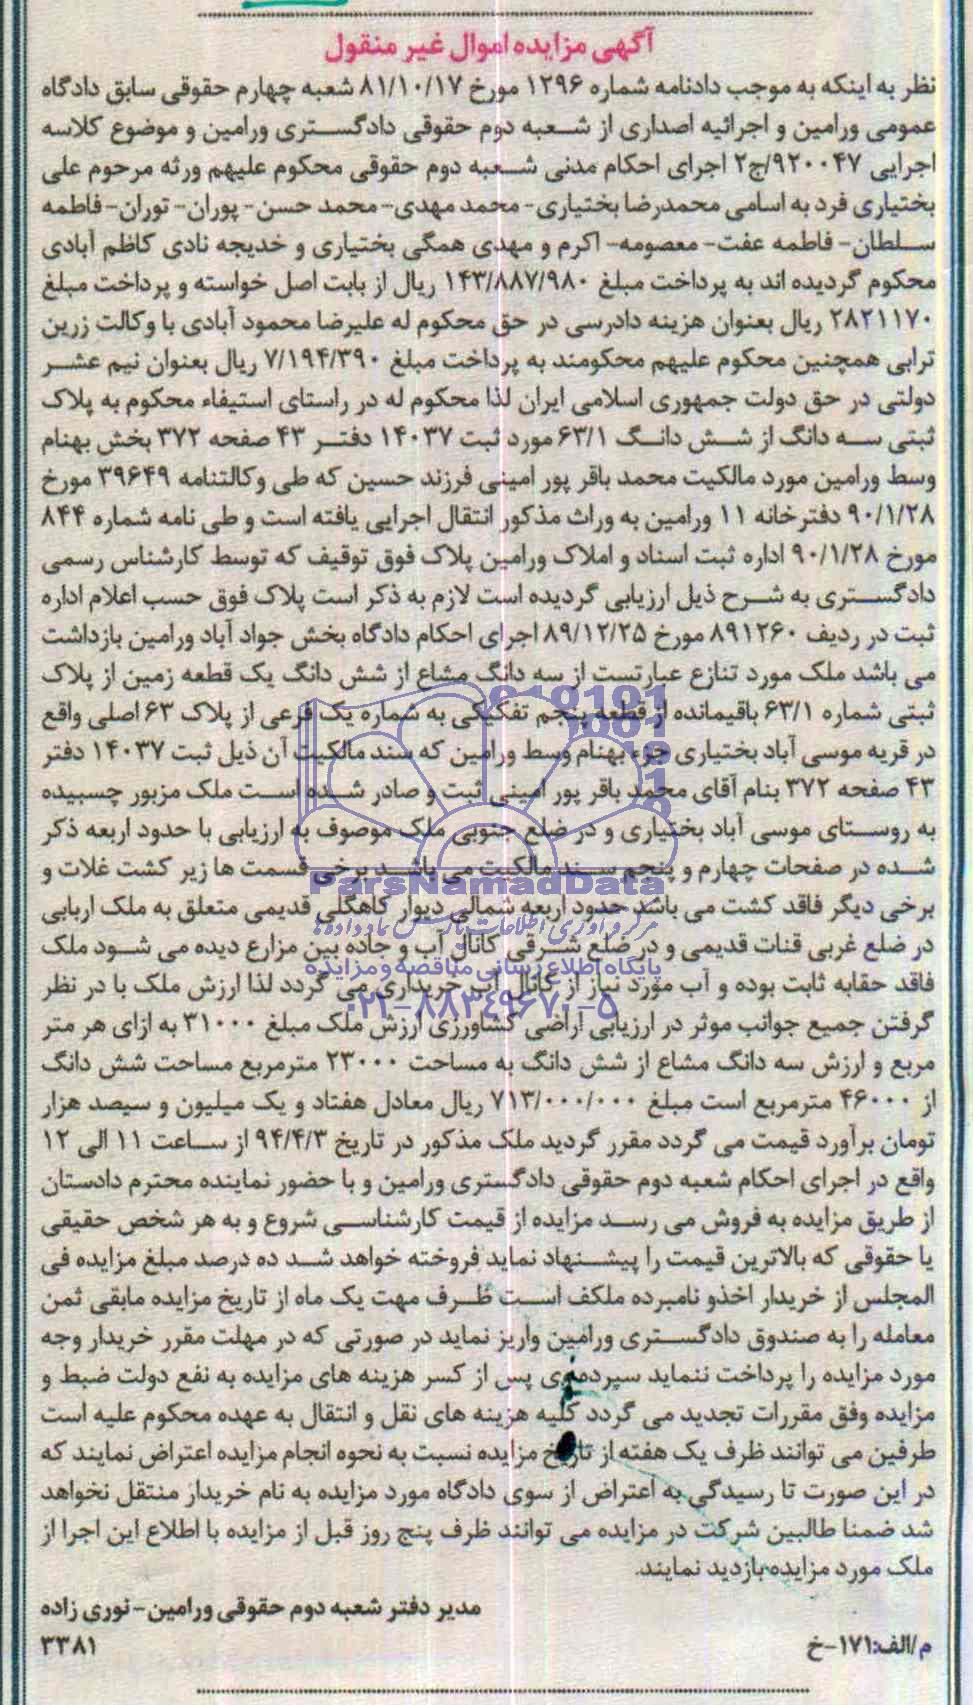 آگهی مزایده اموال غیر منقول
نظر به اینکه به موجب دادنامه شماره ۱۲۹۶ مورخ ۸۱/۱۰/۱۷ شعبه چهارم حقوقی سابق دادگاه
عمومی ورامین و اجرائیه اصداری از شعبه دوم حقوقی دادگستری ورامین و موضوع کلاسه
اجرایی ۹۲۰۰۴۷/ج۲ اجرای احکام مدنی شعبه دوم حقوقی محکوم علیهم ورثه مرحوم علی
بختیاری فرد به اسامی محمدرضا بختیاری- محمد مهدی- محمد حسن- پوران- توران- فاطمه
سلطان- فاطمه عفت- معصومه- اکرم و مهدی همگی بختیاری و خدیجه نادی کاظم آبادی
محکوم گردیده اند به پرداخت مبلغ ۱۴۳/۸۸۷/۹۸۰ ریال از بابت اصل خواسته و پرداخت مبلغ
۲۸۲۱۱۷۰ ریال بعنوان هزینه دادرسی در حق محکوم له علیرضا محمود آبادی با وکالت زرین
ترابی همچنین محکوم علیهم محکومند به پرداخت مبلغ ۷/۱۹۴/۳۹۰ ریال بعنوان نیم عشر
دولتی در حق دولت جمهوری اسلامی ایران لذا محکوم له در راستای استیفاء محکوم به پلاک
ثبتی سه دانگ از شش دانگ ۶۳/۱ مورد ثبت ۱۴۰۳۷ دفتر ۴۳ صفحه ۳۷۲ بخش بهنام
وسط ورامین مورد مالکیت محمد باقر پور امینی فرزند حسین که طی وکالتنامه ۳۹۶۴۹ مورخ
۹۰/۱/۲۸ دفترخانه ۱۱ ورامین به وراث مذکور انتقال اجرایی یافته است و طی نامه شماره ۸۴۴
مورخ ۹۰/۱/۲۸ اداره ثبت اسناد و املاک ورامین پلاک فوق توقیف که توسط کارشناس رسمی
دادگستری به شرح ذیل ارزیابی گردیده است لازم به ذکر است پلاک فوق حسب اعلام اداره
ثبت در ردیف ۸۹۱۲۶۰ مورخ ۸۹/۱۲/۲۵ اجرای احکام دادگاه بخش جواد آباد ورامین بازداشت
می باشد ملک مورد تنازع عبارتست از سه دانگ مشاع از شش دانگ یک قطعه زمین از پلاک
ثبتی شماره ۶۳/۱ باقیمانده از قطعه پنجم تفکیکی به شماره یک فرعی از پلاک ۶۳ اصلی واقع
در قریه موسی آباد بختیاری جزء بهنام وسط ورامین که سند مالکیت آن ذیل ثبت ۱۴۰۳۷ دفتر
۴۳ صفحه ۳۷۲ بنام آقای محمد باقر پور امینی ثبت و صادر شده است ملک مزبور چسبیده
به روستای موسی آباد بختیاری و در ضلع جنوبی ملک موصوف به ارزیابی با حدود اربعه ذکر
شده در صفحات چهارم و پنجم سند مالکیت می باشد برخی قسمت ها زیر کشت غلات و
برخی دیگر فاقد کشت می باشد حدود اربعه شمالی دیوار کاهگلی قدیمی متعلق به ملک اربابی
در ضلع غربی قنات قدیمی و در ضلع شرقی کانال آب و جاده بین مزارع دیده می شود ملک
فاقد حقابه ثابت بوده و آب مورد نیاز از کانال آب خریداری می گردد لذا ارزش ملک با در نظر
گرفتن جمیع جوانب موثر در ارزیابی اراضی کشاورزی ارزش ملک مبلغ ۳۱۰۰۰ به ازای هر متر
مربع و ارزش سه دانگ مشاع از شش دانگ به مساحت ۲۳۰۰۰ مترمربع مساحت شش دانگ
از ۴۶۰۰۰ مترمربع است مبلغ ۷۱۳/۰۰۰/۰۰۰ ریال معادل هفتاد و یک میلیون و سیصد هزار
تومان برآورد قیمت می گردد مقرر گردید ملک مذکور در تاریخ ۹۴/۴/۳ از ساعت ۱۱ الی ۱۲
واقع در اجرای احکام شعبه دوم حقوقی دادگستری ورامین و با حضور نماینده محترم دادستان
از طریق مزایده به فروش می رسد مزایده از قیمت کارشناسی شروع و به هر شخص حقیقی
یا حقوقی که بالاترین قیمت را پیشنهاد نماید فروخته خواهد شد ده درصد مبلغ مزایده فی
المجلس از خریدار اخذو نامبرده ملکف است ظرف مهت یک ماه از تاریخ مزایده مابقی ثمن
معامله را به صندوق دادگستری ورامین واریز نماید در صورتی که در مهلت مقرر خریدار وجه
مورد مزایده را پرداخت ننماید سپرده وی پس از کسر هزینه های مزایده به نفع دولت ضبط و
مزایده وفق مقررات تجدید می گردد کلیه هزینه های نقل و انتقال به عهده محکوم علیه است
طرفین می توانند ظرف یک هفته از تاریخ مزایده نسبت به نحوه انجام مزایده اعتراض نمایند که
در این صورت تا رسیدگی به اعتراض از سوی دادگاه مورد مزایده به نام خریدار منتقل نخواهد
شد ضمنا طالبین شرکت در مزایده می توانند ظرف پنج روز قبل از مزایده با اطلاع این اجرا از
ملک مورد مزایده بازدید نمایند.
مدیر دفتر شعبه دوم حقوقی ورامین- نوری زاده
م/الف:۱۷۱-خ ۳۳۸۱
ParsNamadData
مرکز فرآوری اطلاعات پارس نماد داده ها
پایگاه اطلاع رسانی مناقصه و مزایده
۰۲۱-۸۸۳۴۹۶۷۰-۵